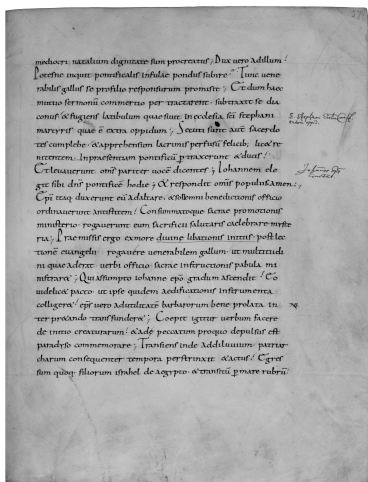 mediocri natalium dignitate sum procreatus; Dux vero ad illum!
Potesne inquit pontificalis infulae pondus subire? Tunc vene
rabilis gallus se pro filio responsurum promisit; Et dum haec
mutuo sermonū commertio pertractarent. subtraxit se dia
conus & fugiens latibulum quaesiuit in ecclesia sc̄i stephani
martyris quae ē extra oppidum; Secuti sunt aut̄ sacerdo
tes cum plebe. & apprehensum lacrimis perfusū felicib; lic& re
nitentem. In praesentiam pontificū ptraxerunt & ducis!
Et leuauerunt om̄s pariter uocē dicentes; Iohannem ele
git sibi dn̄s pontificē hodie; & respondit om̄is populus amen;
Ep̄i itaq duxerunt eū ad altare. & sollemni benedictionis officio
ordinauerunt antistitem! Consummatoque sacrae promotionis
ministerio. rogauerunt eum sacrificii salutaris caelebrare myste
ria; Praemissis ergo ex more diuine libationis initiis. post lec
tionē euangelii. rogauere uenerabilem gallum. ut multitudi
ni quae aderat uerbi officio sacrae instructionis pabula mi
nistrara&; Qui assumpto iohanne ep̄o gradum ascendit! Eo
uidelic& pacto. ut ipse quidem aedificationis instrumenta
collig&. ep̄s uero ad utilitatē barbarorum bene prolata in
ter pr&ando transfunder&; Coepit igitur uerbum facere
de initio creaturarum! & ade peccatum pro quo depulsus est
paradyso commemorare; Transiens inde ad diluuium. patriar
charum consequenter tempora perstrinxit & actus! Egres
sum quoq filiorum israhel de aegypto. & transitū p mare rubrū